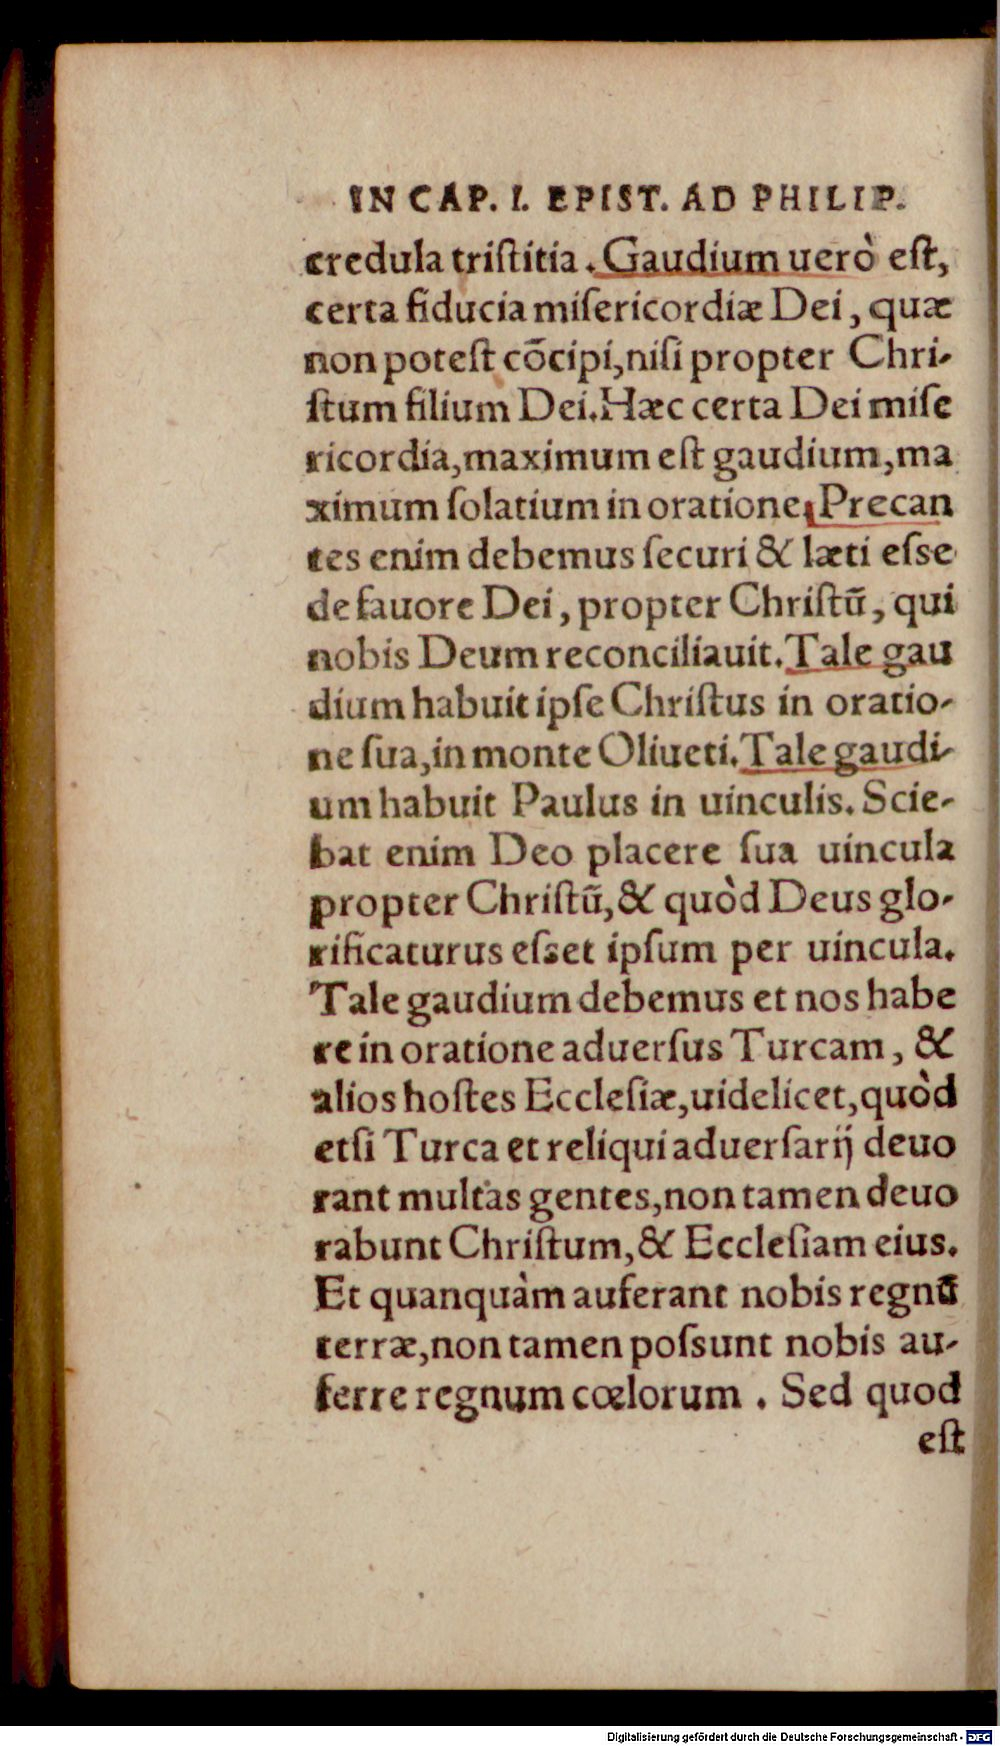 IN CAP. I. EPIST. AD PHILIP.
credula triſtitia. Gaudium uerò eſt,
certa fiducia miſericordiæ Dei, quæ
non poteſt cōcipi, niſi propter Chri-
ſtum filium Dei. Hæc certa Dei miſe
ricordia, maximum eſt gaudium, ma
ximum ſolatium in oratione. Precan
tes enim debemus ſecuri & læti eſse
de fauore Dei, propter Chriſtū, qui
nobis Deum reconciliauit. Tale gau
dium habuit ipſe Chriſtus in oratio-
ne ſua, in monte Oliueti. Tale gaudi-
um habuit Paulus in uinculis. Scie-
bat enim Deo placere ſua uincula
propter Chriſtū, & quòd Deus glo-
rificaturus eſset ipſum per uincula.
Tale gaudium debemus et nos habe
re in oratione aduerſus Turcam, &
alios hoſtes Eccleſiæ, uidelicet, quòd
etſi Turca et reliqui aduerſarij deuo
rant multas gentes, non tamen deuo
rabunt Chriſtum, & Eccleſiam eius.
Et quanquàm auferant nobis regnū
terræ, non tamen poſsunt nobis au-
ferre regnum cœlorum. Sed quod
eſt
Digitalisierung gefördert durch die Deutsche Forschungsgemeinschaft - DFG